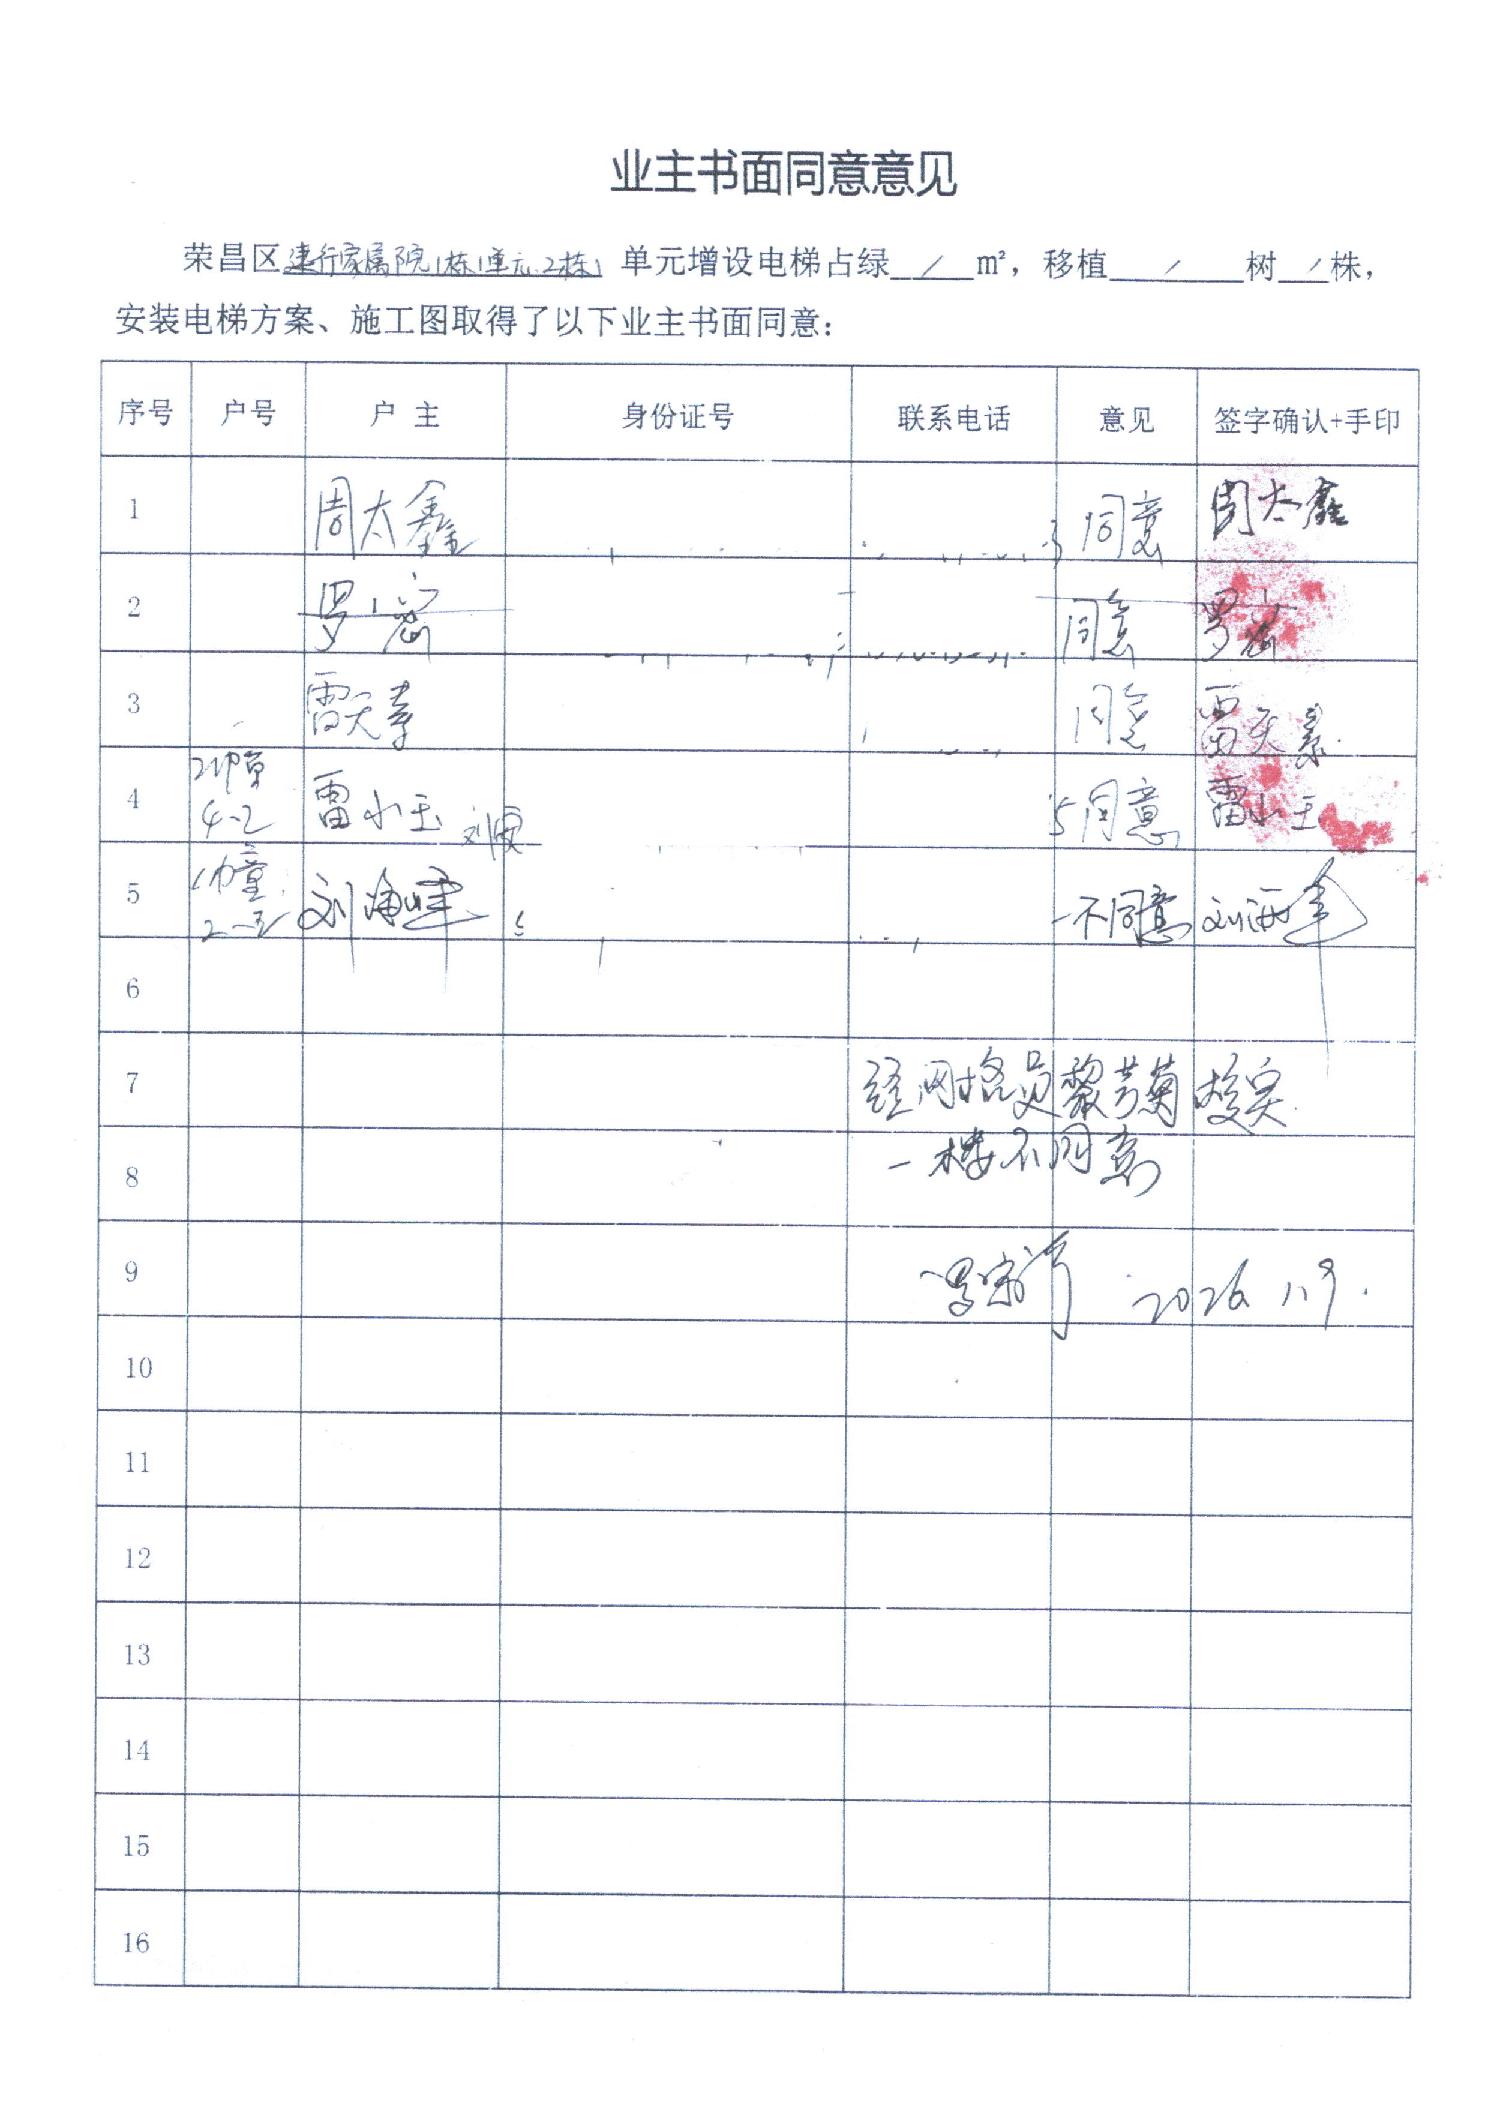 业主书面同意意见
荣昌区建行家属院1栋1单元.2栋1单元增设电梯占绿 / m²，移植 / 树 / 株，
安装电梯方案、施工图取得了以下业主书面同意：
序号 户号 户 主 身份证号 联系电话 意见 签字确认+手印
1 周太鑫 同意 周太鑫
2 罗 同意 罗
3 雷天 同意 雷天
4 4-2 雷小玉 同意 雷小玉
5 刘海峰 不同意 刘海
6
7 经网格员黎芳菊核实
8 一楼不同意
9 2026.1.9.
10
11
12
13
14
15
16